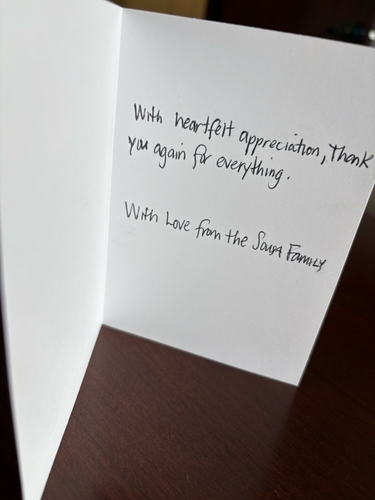 With heartfelt appreciation, Thank
you again for everything.
With Love from the Sousa Family